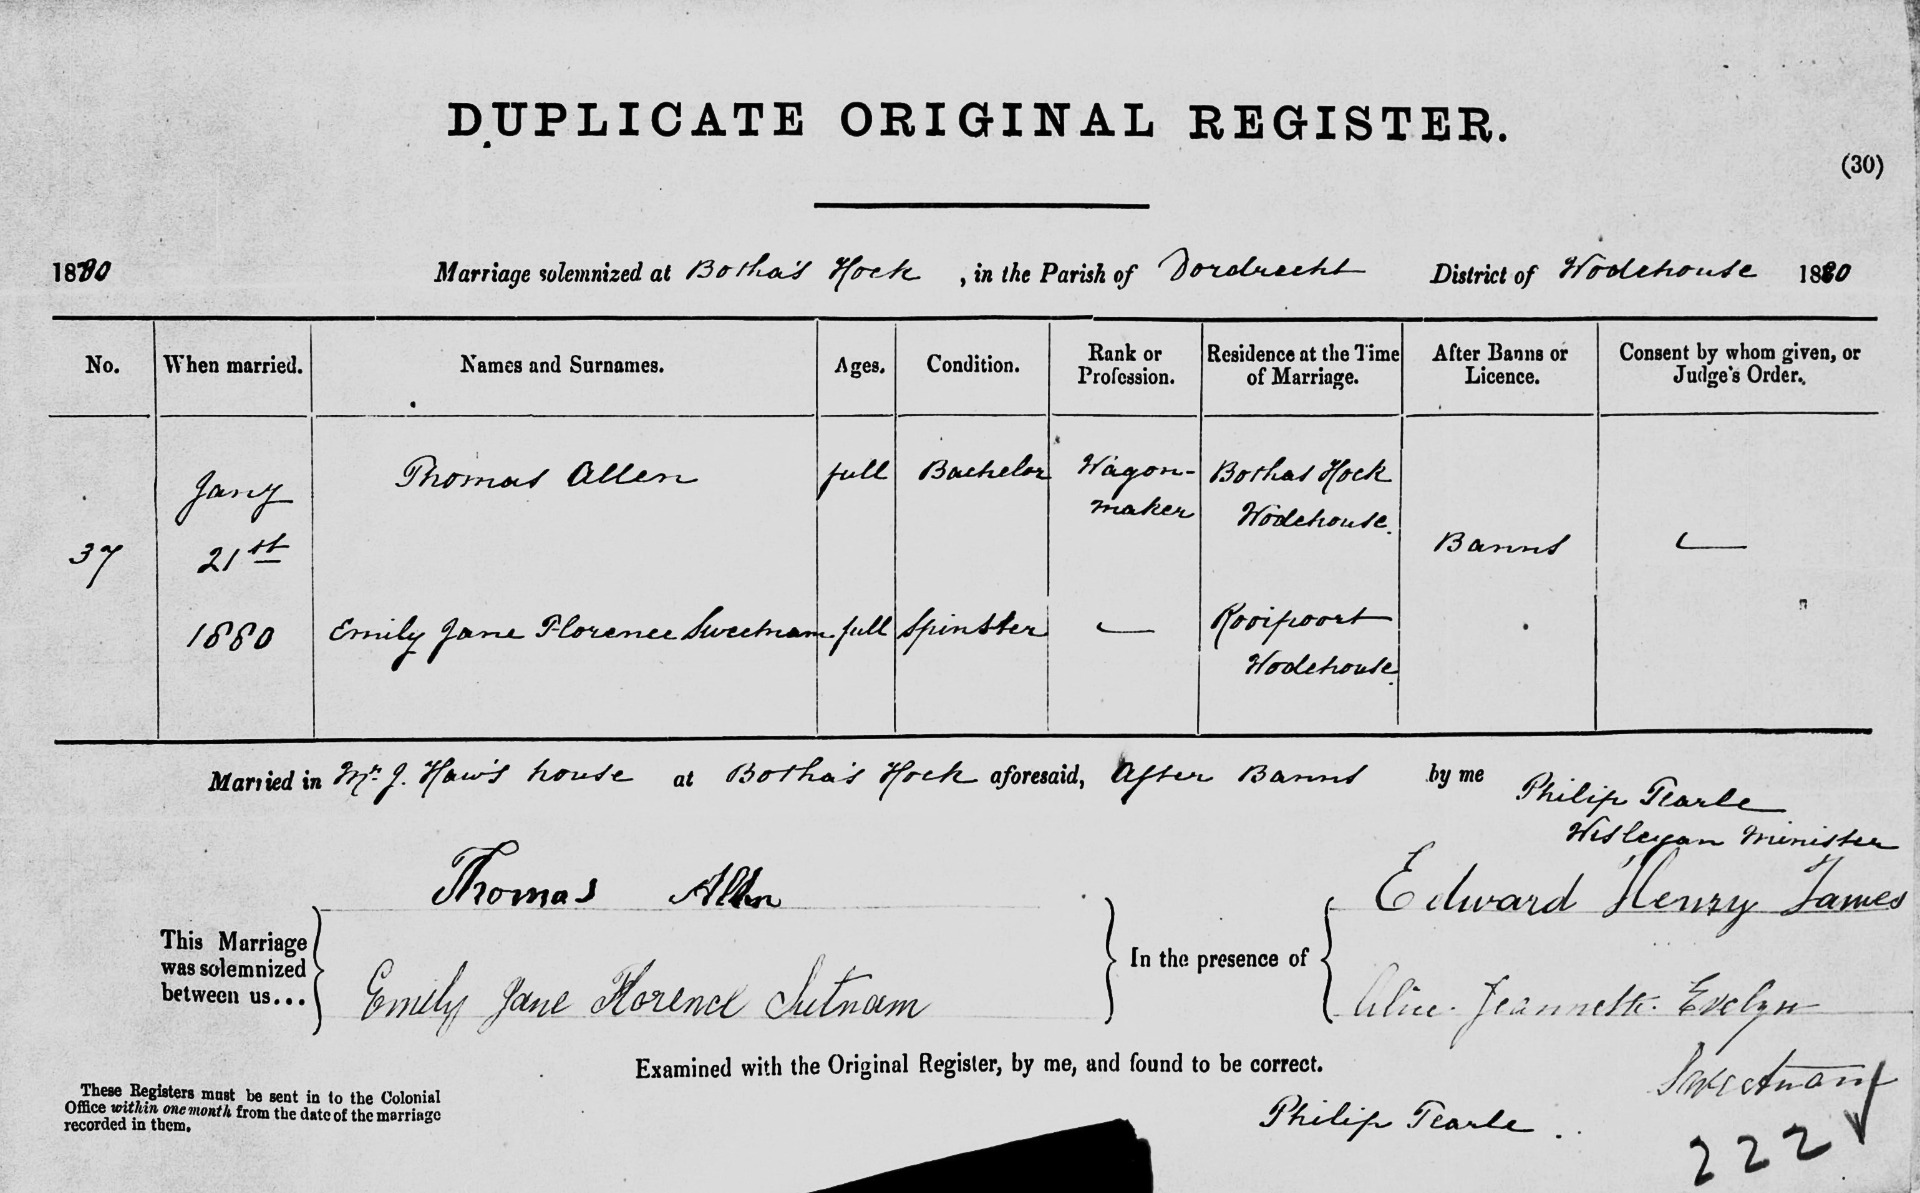 DUPLICATE ORIGINAL REGISTER.
(30)
1880 Marriage solemnized at Botha's Hock, in the Parish of Dordrecht District of Wodehouse 1880
No. When married. Names and Surnames. Ages. Condition. Rank or Profession. Residence at the Time of Marriage. After Banns or Licence. Consent by whom given, or Judge's Order.
37 Jany 21st 1880 Thomas Allen full Bachelor Wagon-maker Bothas Hock Wodehouse. Banns —
Emily Jane Florence Sweetnam full Spinster — Rooipoort Wodehouse.
Married in Mr. J. Haw's house at Botha's Hock aforesaid, After Banns by me Philip Tearle
Wesleyan Minister
This Marriage was solemnized between us...
Thomas Allen
Emily Jane Florence Sutnam
In the presence of
Edward Henry James
Alice Jeannette Evelyn
Sweetnam
Examined with the Original Register, by me, and found to be correct.
Philip Tearle.
These Registers must be sent in to the Colonial
Office within one month from the date of the marriage
recorded in them.
222